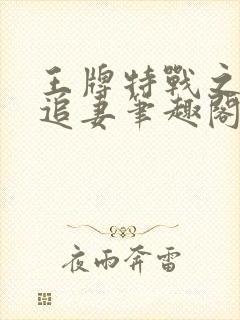 王牌特戰之
追妻筆趣閣
夜雨奔雷